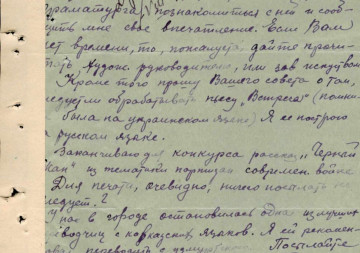 драматурга, познакомиться с ней и сооб-
щить мне свое впечатление. Если Вам
нет времени, то, пожалуйста, дайте прочи-
тать худож. руководителю, или зав. искусством
Кроме того прошу Вашего совета о том,
следует ли обрабатывать пьесу „Встреча“
была на украинском языке) Я ее построю
русском языке.
Заканчиваю для конкурса рассказ „Черный
из тематики партизан современ. войне
Для печати, очевидно, ничего посылать не
следует?
У нас в городе остановилась одна из лучших
водчиц с кавказских языков. Я ей рекомен-
переводить с Постылайте